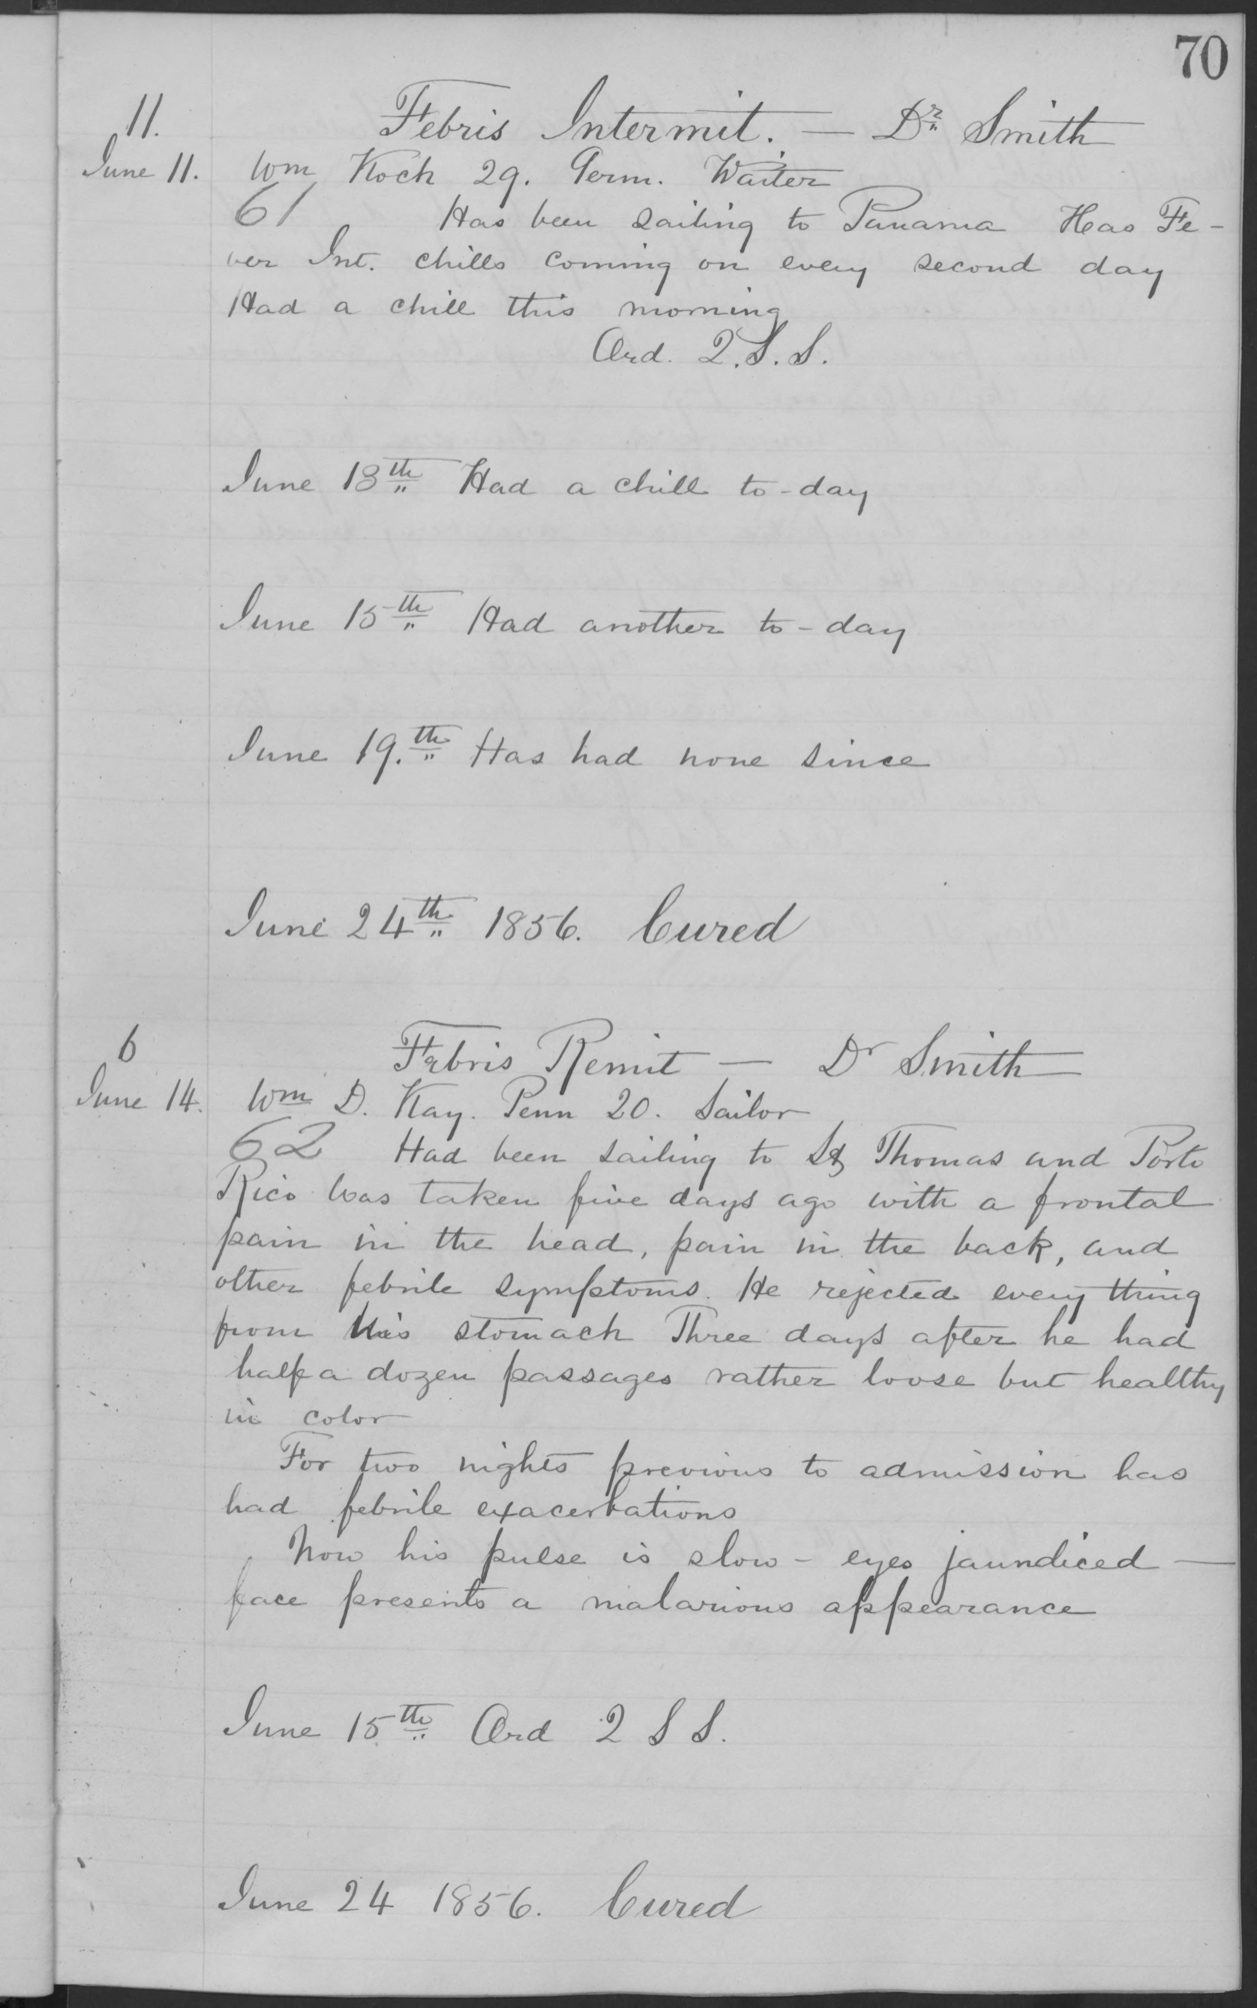 70
11.
Febris Intermit. — Dr. Smith
June 11. Wm Koch 29. Germ. Waiter
61 Has been sailing to Panama Has Fe-
ver Int. chills coming on every second day
Had a chill this morning
Ord. Q.S.S.
June 13th Had a chill to-day
June 15th Had another to-day
June 19.th Has had none since
June 24th 1856. Cured
6
Febris Remit — Dr Smith
June 14. Wm D. Kay. Penn 20. Sailor
62 Had been sailing to St Thomas and Porto
Rico Was taken five days ago with a frontal
pain in the head, pain in the back, and
other febrile symptoms. He rejected every thing
from his stomach Three days after he had
half a dozen passages rather loose but healthy
in color
For two nights previous to admission has
had febrile exacerbations
Now his pulse is slow - eyes jaundiced —
face presents a malarious appearance
June 15th Ord Q S S.
June 24 1856. Cured